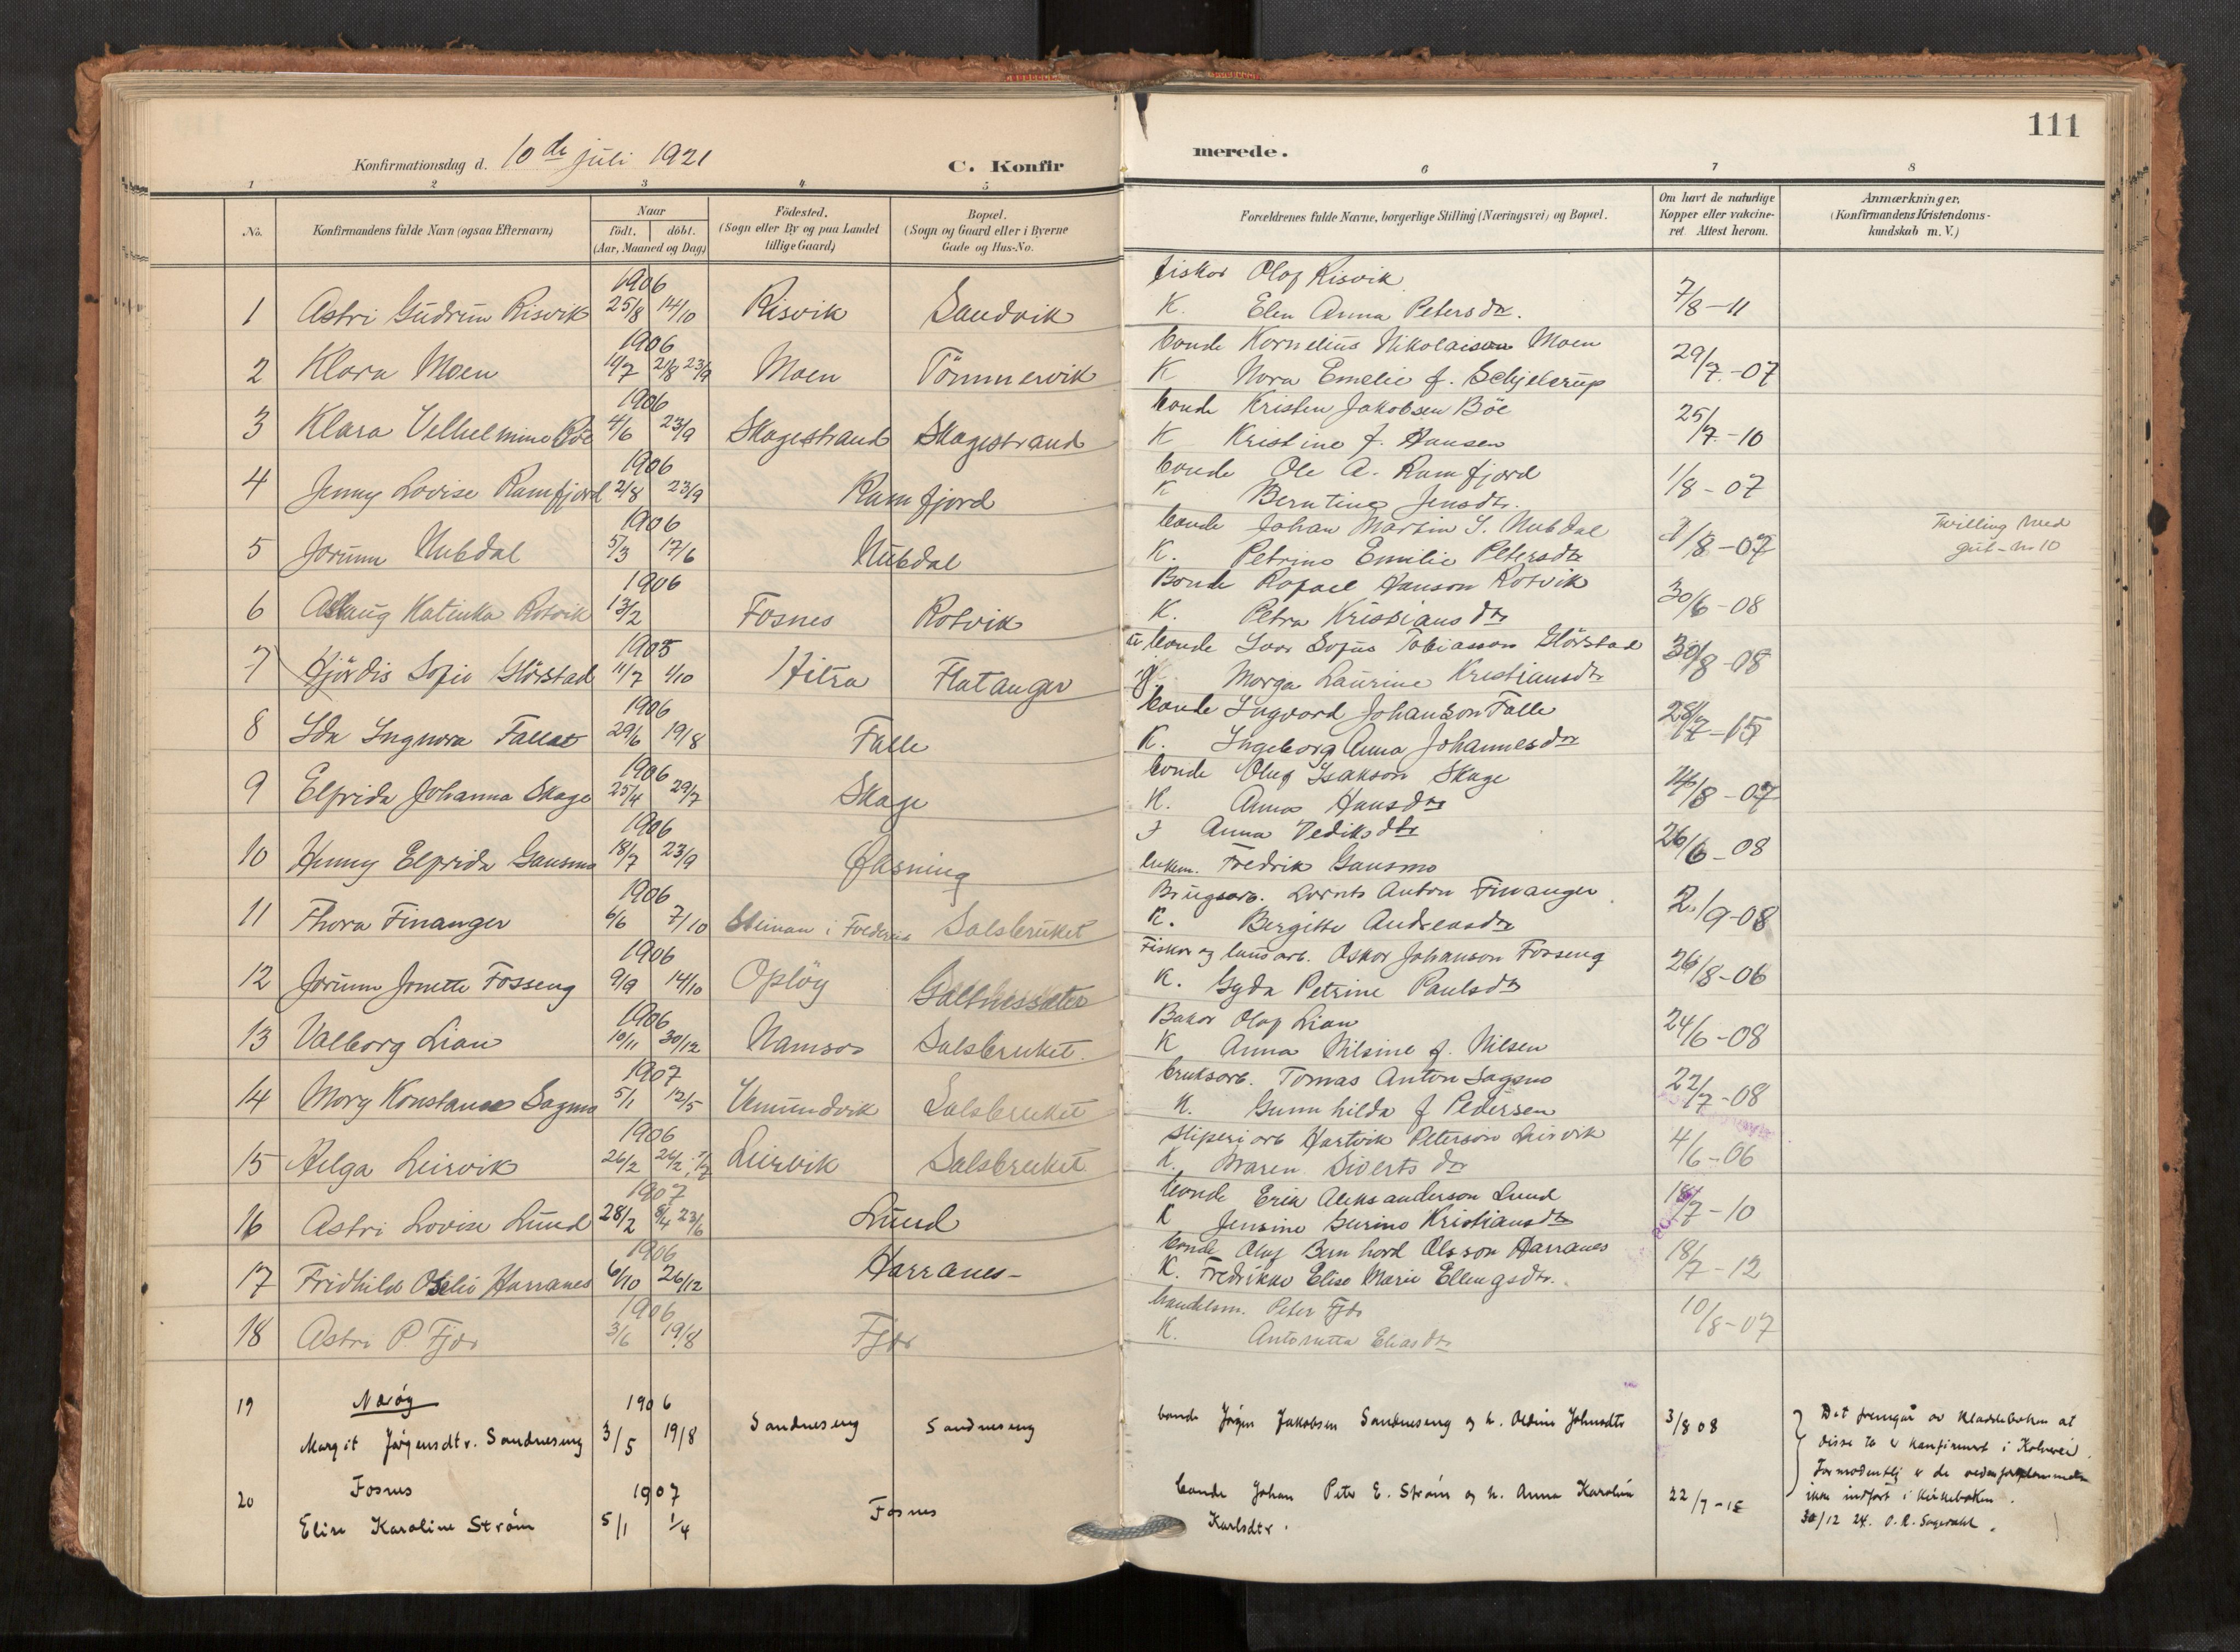 111
Konfirmationsdag d. 10de juli 1921
C. Konfir
merede.
1 2 3 4 5 6 7 8
No.
Konfirmandens fulde Navn (ogsaa Efternavn)
Naar
født. døbt.
(Aar, Maaned og Dag)
Fødested.
(Sogn eller By og paa Landet
tillige Gaard)
Bopæl.
(Sogn og Gaard eller i Byerne
Gade og Hus-No.
Forældrenes fulde Navne, borgerlige Stilling (Næringsvei) og Bopæl.
Om havt de naturlige
Kopper eller vakcine-
ret Attest herom.
Anmærkninger,
(Konfirmandens Kristendoms-
kundskab m. V.)
1906 fisker Olaf Risvik
1 Astri Gudrun Risvik 25/8 14/10 Risvik Sandvik K. Elen Anna Petersdtr. 7/8-11
1906 bonde Kornelius Nikolaison Moen
2 Klara Moen 21/8 23/9 Moen Tömmervik K Nora Emelie f. Schjelerup 29/7-07
1906 bonde Kristen Jakobsen Böe
3 Klara Velhelmine Böe 4/6 23/9 Skagestrand Skagestrand K Kristine f. Hansen 25/7-10
1906 bonde Ole A. Ramfjord
4 Jenny Lovise Ramfjord 2/8 23/9 Ramfjord K Berntine Jensdtr. 1/8-07
1906 bonde Johan Martin S. Nubdal
5 Jorunn Nubdal 5/3 17/6 Nubdal K. Petrine Emilie Petersdtr /8-07 Tvilling med
gut - nr 10
1906 Bonde Rafael Hanson Rotvik
6 Aslaug Katinka Rotvik 13/2 Fosnes Rotvik K. Petra Kristiansdtr 30/6-08
1905 bonde Ivar Sofus Tobiasson Glörstad
7 Hjördis Sofie Glörstad 11/7 1/10 Hitra Flatanger Marga Laurine Kristiansdtr 30/8-08
1906 bonde Ingvard Johanson Falle
8 Ida Ingnora Falle 29/6 19/8 Falle K. Ingeborg Anna Johannesdtr 28/7-15
1906 bonde Oluf Isakson Skage
9 Elfrida Johanna Skage 25/4 29/7 Skage K. Anna Hansdtr /8-07
1906 Anna Vediksdtr
10 Henny Elfrida Gansmo 18/7 23/9 Gjasning Fredrik Gansmo 26/6-08
1906 Brugsarb. Lornts Anton Finanger
11 Thora Finanger 6/6 7/10 Salsbruket K. Bergitte Andreasdtr 2/9-08
1906 Fisker og Oskar Johanson Fosseng
12 Jorunn Jonette Fosseng 9/9 14/10 Opløy K. Gyda Petrine Paulsdtr 26/8-06
1906 Baker Olaf Lian
13 Valborg Lian 10/11 30/12 Namsos Salsbruket. K Anna Nilsine f. Nilsen 24/6-08
1907 bruksarb. Tomas Anton Sagmo
14 Mary Konstanse Sagmo 5/1 12/5 Vemundvik Salsbruket K. Gunnhilda f Pedersen 22/7-08
1906 Sliperiarb Hartvik Peterson Leirvik
15 Helga Leirvik 26/2 Leirvik Salsbruket K. Maren Sivertsdtr 4/6-06
1907 bonde Erik Aleksanderson Lund
16 Astri Lovise Lund 28/2 8/4 23/6 Lund K Jensine Gurine Kristiansdtr 18/7-10
1906 bonde Oluf Bernhard Olsson Harranes
17 Fridhild Harranes 6/10 26/12 Harranes- K. Fredrikke Elise Marie Ellingsdtr. 18/7-12
1906 handelsm. Peter Fjær
18 Astri P. Fjær 3/6 19/8 Fjær K. Antonetta Eliasdtr 10/8-07
19 Nærøy 1906
Margit Jørgensdtr. Sandneseng 3/5 19/8 Sandneseng Sandneseng bonde Jørgen Jakobsen Sandneseng og h. Oldine Johnsdtr 3/8 08
Det fremgår av kladdeboken at
disse to er konfirmert i Kolvereid.
Formodentlig er de
ikke indført i kirkeboken.
30/12 24.
20 Fosnes 1907
Elise Karoline Strøm 5/1 1/4 Fosnes bonde Johan Peter E. Strøm og h. Anna Karoline 22/7-15
Karlsdtr.